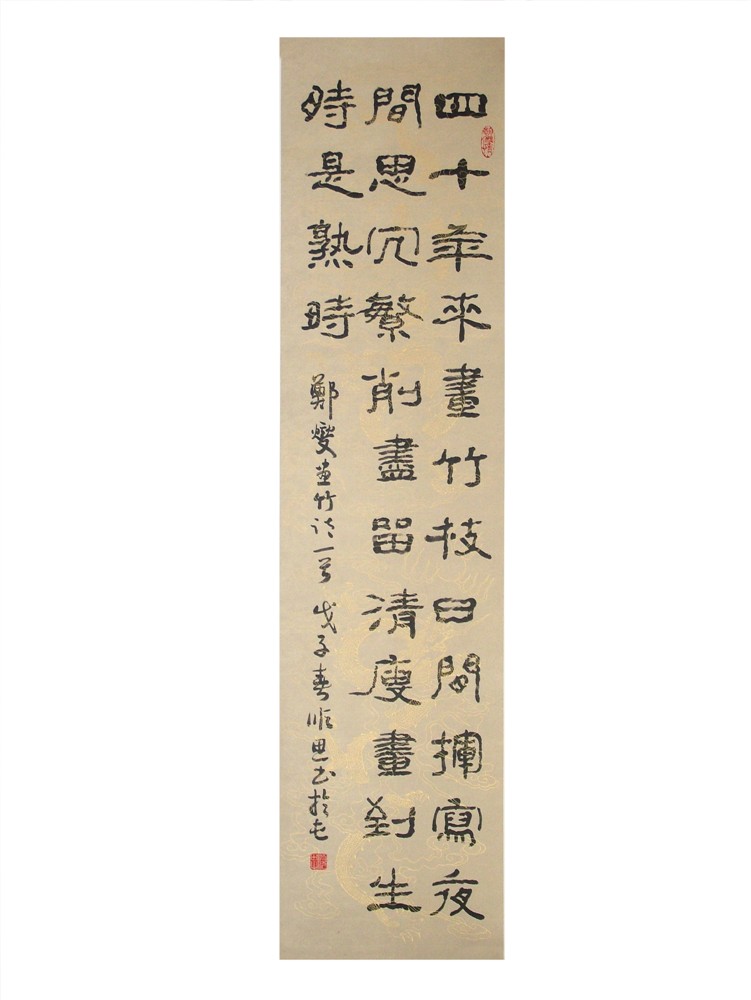 四十年來畫竹枝日間揮寫夜
間思冗繁削盡留清瘦畫到生
時是熟時
鄭燮畫竹詩一首 戊子春順思書於屯